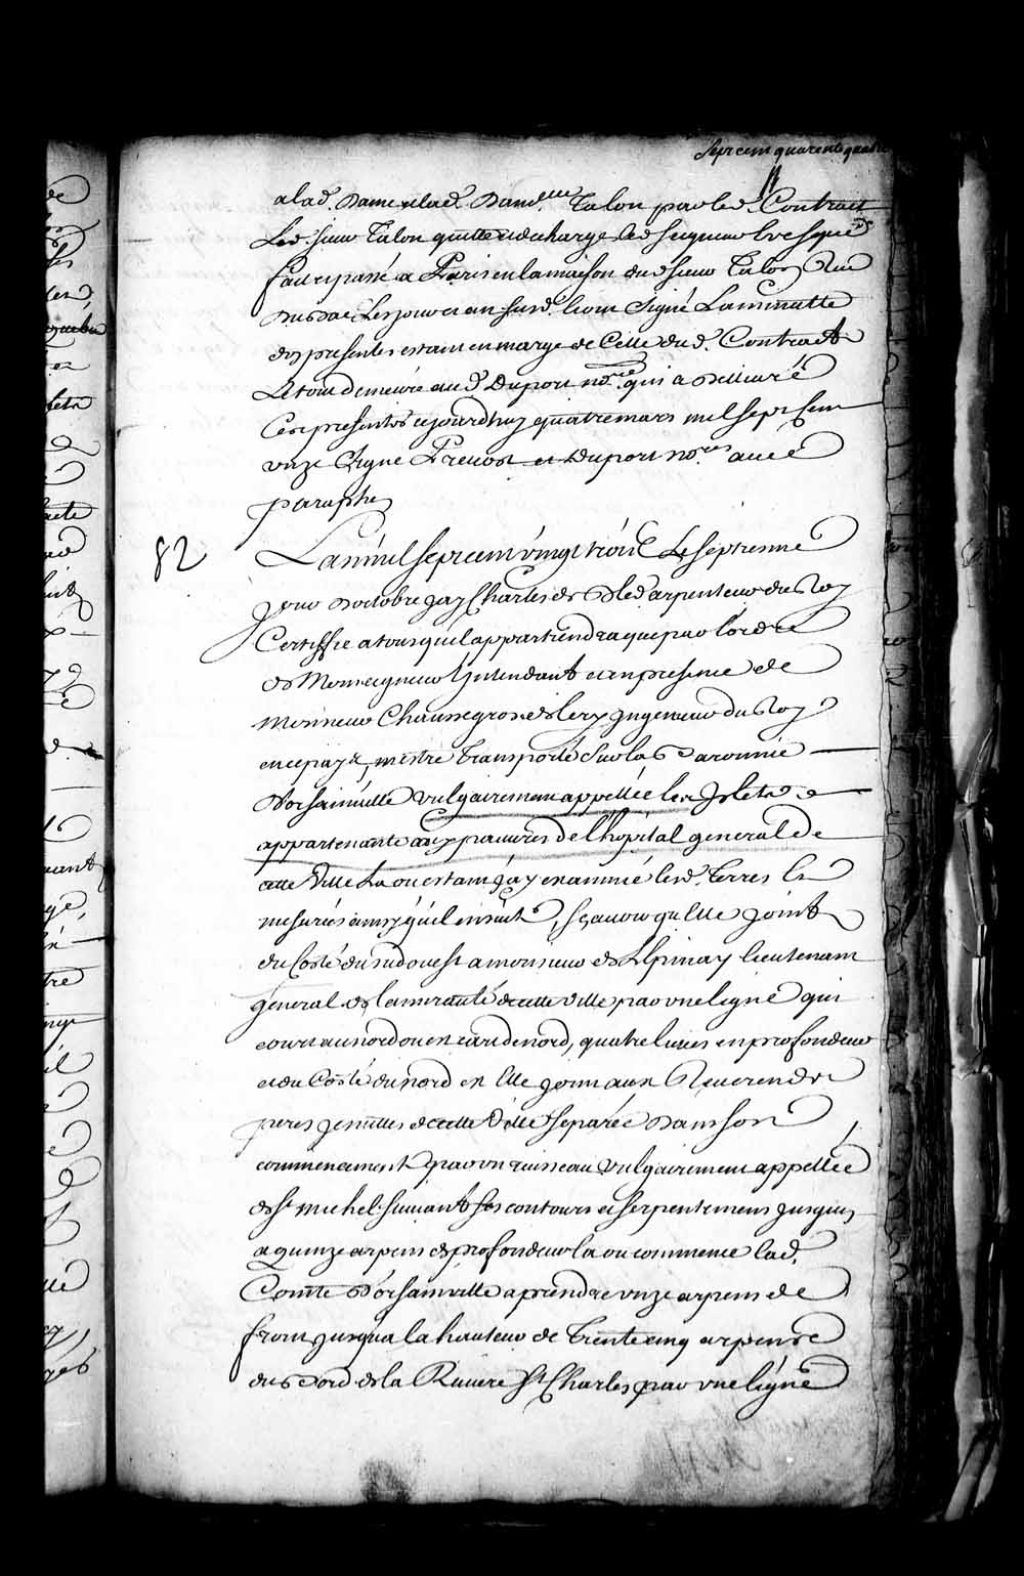 Sept cent quarente quatre
a lad. Dame et lad. Damd.lle Talon par led. Contract
Led. sieur Talon quitte et decharge led seigneur Evesque
fait et passé a Paris en la maison dud sieur Talon Rue
du Bac Les jour et an susd. et ont signé La minutte
des presentes estant en marge de Celle dud. Contract
Le tout demeuré aud Dupont no.re qui a delivré
Ces presentes ce jourdhuy quatre mars mil sept cent
unze Signé Prevost et Dupont no.res avec
paraphe
82
Lan mil sept cent vingt trois Le septieme
jour doctobre jay Charles de arpenteur du Roy
Certiffie a tous quil appartiendra que par lordre
de Monseigneur Intendant et en presence de
Monsieur Chaussegros de Lery Ingenieur du Roy
en ce pays, mestre transporté sur la Baronnie
Dorsainville vulgairement appellée les Islets
appartenante aux pauvres de lhopital general de
cette Ville La ou estant jay examiné lesd. terres les
mesurées ainsy quil ensuit, sçavoir qu Elle joint
du Costé du sud ouest a monsieur de Lespinay lieutenant
general de lamirauté de cette ville par une ligne qui
court au nord ouest cart de nord, quatre lieues en profondeur
et du Costé du nord est Elle joint aux Reverends
peres jesuittes de cette Ville separée dans son
commencement par un ruisseau vulgairement appellée
de St michel suivant ses contours et serpentemens jusques
a quinze arpens de profondeur la ou commence lad.
Comté Dorsainville a prendre unze arpens de
front jusqua la hauteur de trente cinq arpens
du Bord de la Riviere St Charles par une ligne